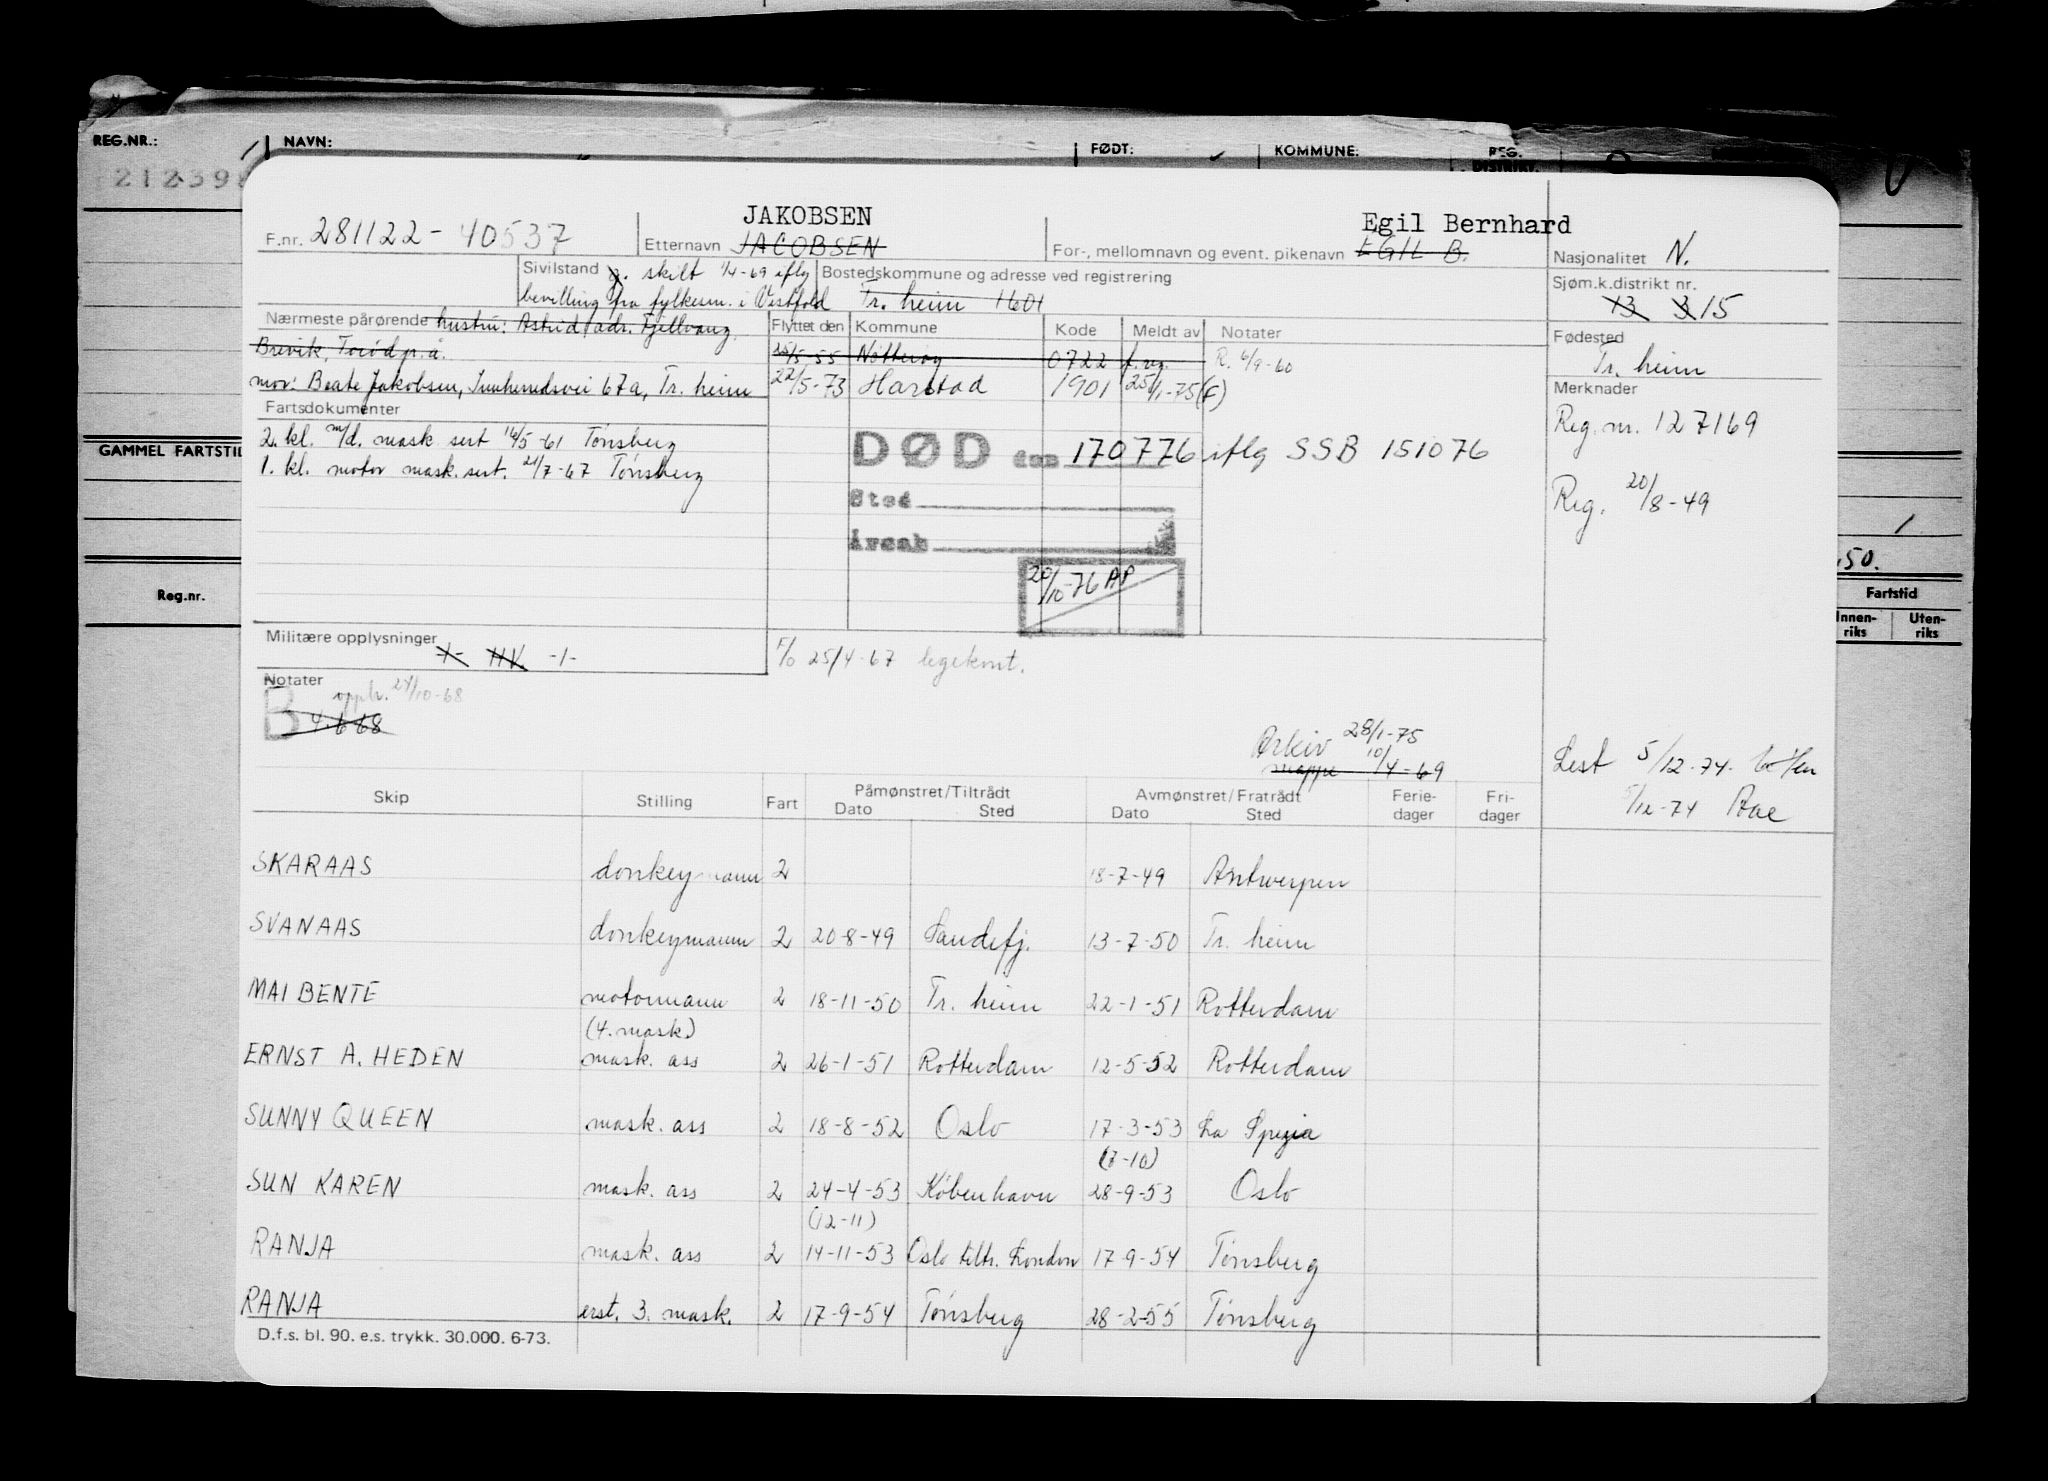 REG.NR.: NAVN: FØDT: KOMMUNE: REG. DISTRIKT.
GAMMEL FARTSTID
Reg.nr.
50.
Fartstid
Innen-riks Uten-riks
F.nr. 281122-40537
JAKOBSEN
Etternavn JACOBSEN
Egil Bernhard
For-, mellomnavn og event. pikenavn EGIL B.
Nasjonalitet N.
Sivilstand g. skilt 1/4-69 iflg
bevilling fra fylkesm. i Vestfold
Bostedskommune og adresse ved registrering
Tr. heim 1601
Sjøm.k.distrikt nr.
13 3 15
Nærmeste pårørende hustru: Astrid, adr. Fjellvang
Brevik, Torød p.å.
mor: Beate Jakobsen, 67a, Tr. heim
Flyttet den Kommune Kode Meldt av Notater
25/5-55 Nøtterøy 0722 f.reg. R. 6/9-60
22/5-73 Harstad 1901 25/1-75 (F)
Fødested
Tr. heim
Merknader
Reg. nr. 127169
Reg. 20/8-49
Fartsdokumenter
2. kl. m/d. mask sert 16/5-61 Tønsberg
1. kl. motor mask. sert. 21/7-67 Tønsberg
DØD den 170776 iflg SSB 151076
Sted
Årsak
20/10-76 AP
Militære opplysninger HV -1-
F/o 25/4-67 legekont.
Notater
B opph. 24/10-68
4-6-68
Arkiv 28/1-75
mappe 10/4-69
Lest 5/12-74.
/12-74
Skip Stilling Fart Påmønstret/Tiltrådt Dato Sted Avmønstret/Fratrådt Dato Sted Ferie-dager Fri-dager
SKARAAS donkeymann 2 18-7-49 Antwerpen
SVANAAS donkeymann 2 20-8-49 Sandefj. 13-7-50 Tr. heim
MAI BENTE motormann 2 18-11-50 Tr. heim 22-1-51 Rotterdam
(4. mask)
ERNST A. HEDEN mask. ass 2 26-1-51 Rotterdam 12-5-52 Rotterdam
SUNNY QUEEN mask. ass 2 18-8-52 Oslo 17-3-53 La Spezia
(7-10)
SUN KAREN mask. ass 2 24-4-53 København 28-9-53 Oslo
(12-11)
RANJA mask. ass 2 14-11-53 Oslo tiltr. London 17-9-54 Tønsberg
RANJA erst. 3. mask. 2 17-9-54 Tønsberg 28-2-55 Tønsberg
D.f.s. bl. 90. e.s. trykk. 30.000. 6-73.